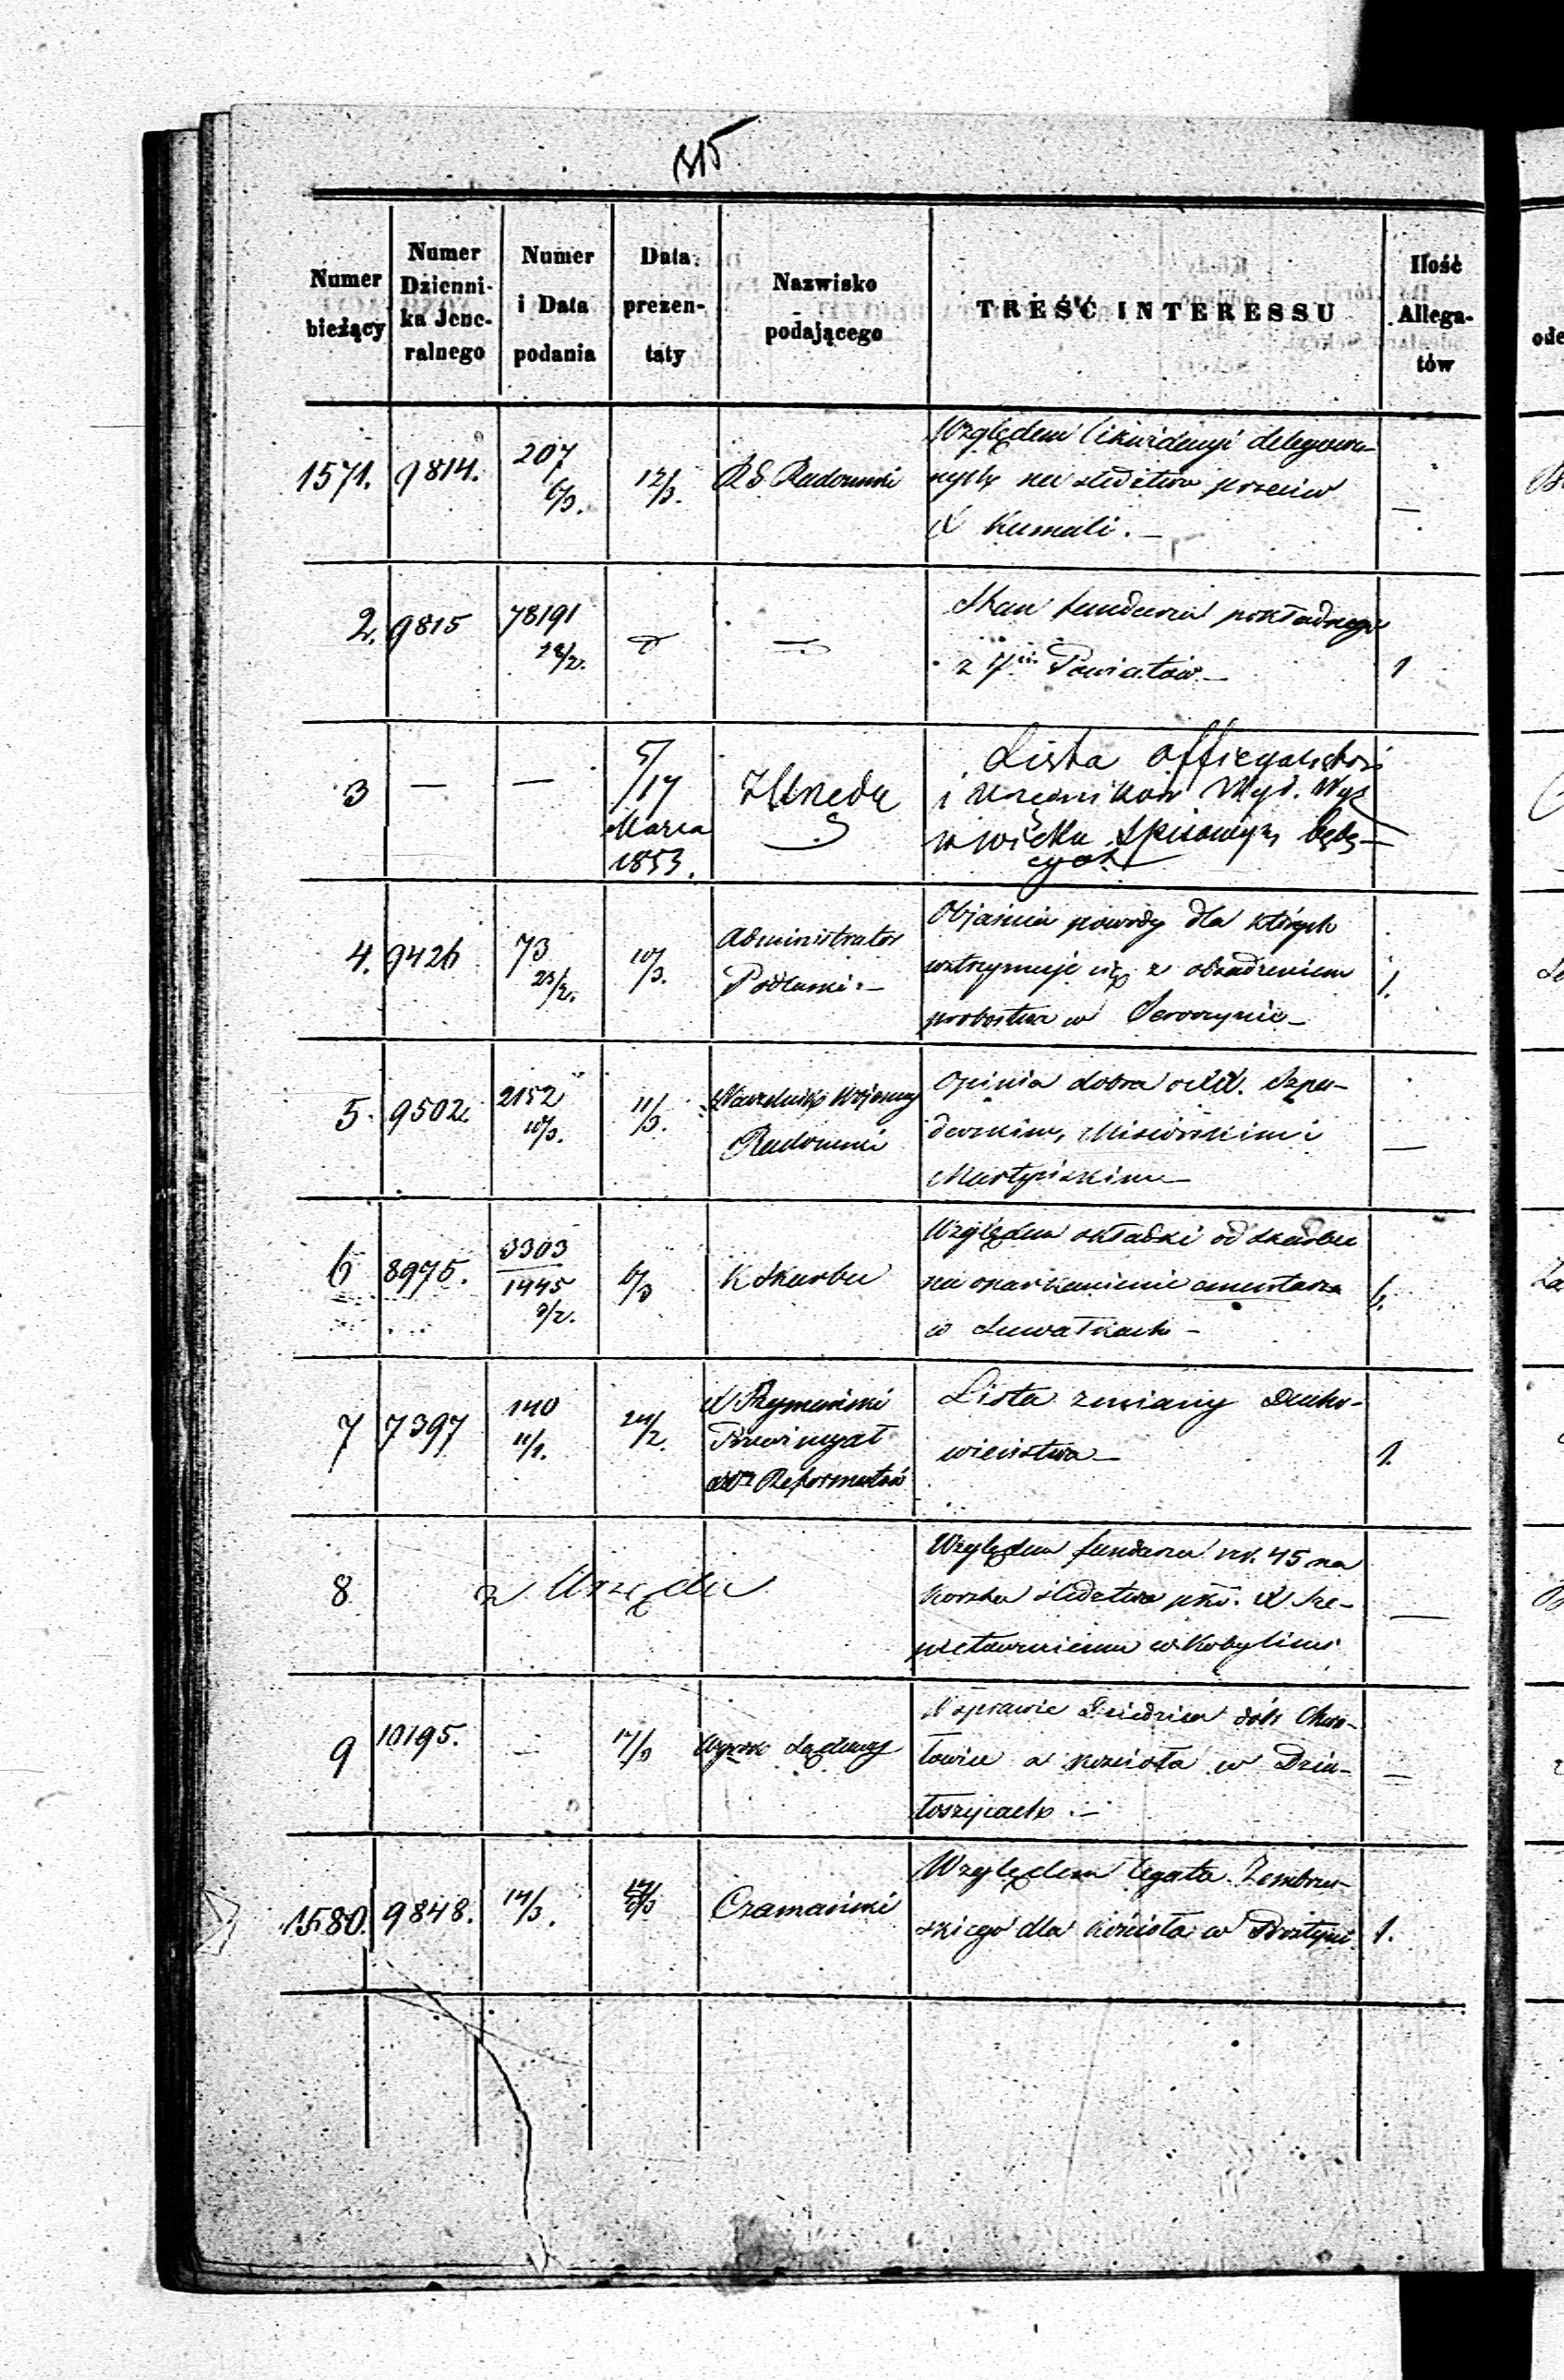 315
Numer bieżący
Numer Dzienni-ka Jene-ralnego
Numer i Data podania
Data prezen-taty
Nazwisko podającego
TREŚĆ INTERESSU
Ilość Allega-tów
1571. 9814. 207 6/3. 12/3. R G Radomski
Względem likwidacyi delegowa-
nych na śledztwo przeciw
X —
2. 9815 78191 28/2.
Stan funduszu pokładnego
z 7miu Powiatów — 1
3 — — 5/17 Marca 1853. Z Urzędu
Lista officyalistów
i Urzędników Wyd. Wyz
w wieku spisowym będą-
cych
4. 9426 73 23/2. 10/3. Administrator Podlaski —
Objaśnia powody dla których
wstrzymuje się z obsadzeniem
probostwa w Seroczynie — 1.
5. 9502 2152 10/3. 11/3. Naczelnik Wojenny Radomski
Opinia dobra o XX.
i
—
6 8975. 3303 1945 9/2. 6/3 K Skarbu
Względem składki od skarbu
na oparkanienie cmentarza
w Suwałkach —
7 7397 140 11/1. 24/2. X Szymański Prowincyał XX Reformatów
Lista zmiany Ducho-
wieństwa — 1.
8 z Urzędu
Względem funduszu rs. 45 na
koszta śledztwa pko. X
w Kobylinie —
9 10195. — 17/3 Wyrok Sądowy
W sprawie Dziedzica dóbr
a kościoła w Dzia-
łoszycach. — —
1580. 9848. 14/3. Czamański
Względem legatu Zembrzu-
skiego dla kościoła w Prostyni 1.